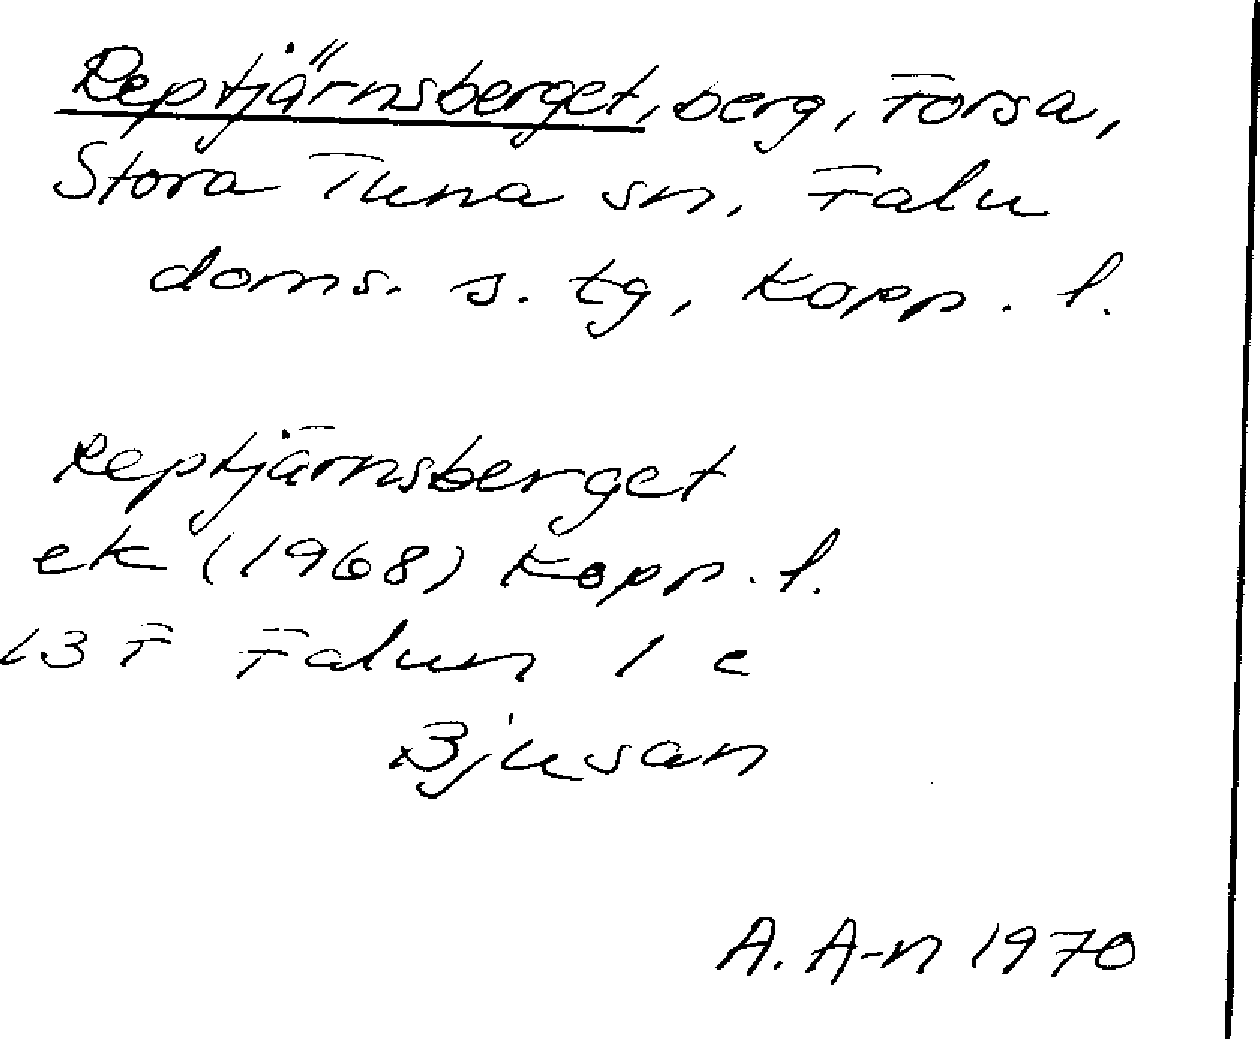 Reptjärnsberget, berg, Forsa,
Stora Tuna sn, Falu
doms. s. tg, Kopp. l.
Reptjärnsberget
ek (1968) Kopp. l.
13 F Falun 1 c
Bjusan
A. A-n 1970